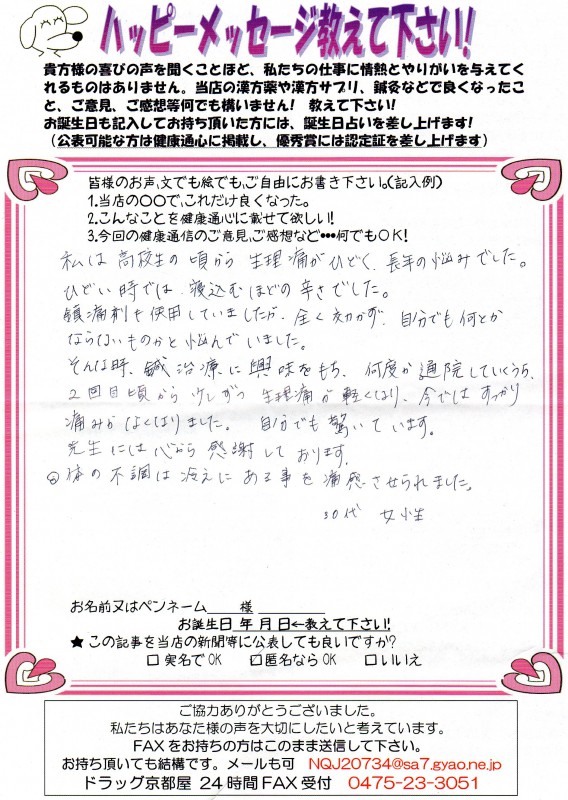 ハッピーメッセージ教えて下さい!
貴方様の喜びの声を聞くことほど、私たちの仕事に情熱とやりがいを与えてく
れるものはありません。当店の漢方薬や漢方サプリ、鍼灸などで良くなったこ
と、ご意見、ご感想等何でも構いません! 教えて下さい!
お誕生日も記入してお持ち頂いた方には、誕生日占いを差し上げます!
(公表可能な方は健康通心に掲載し、優秀賞には認定証を差し上げます)
皆様のお声、文でも絵でも、ご自由にお書き下さい。(記入例)
1.当店の〇〇で、これだけ良くなった。
2.こんなことを健康通心に載せて欲しい!
3.今回の健康通信のご意見、ご感想など・・・何でもOK!
私は高校生の頃から生理痛がひどく、長年の悩みでした。
ひどい時では、寝込むほどの辛さでした。
鎮痛剤も使用していましたが、全く効かず、自分でも何とか
ならないものかと悩んでいました。
そんな時、鍼治療に興味をもち、何度か通院していくうち、
2回目頃から少しずつ生理痛が軽くなり、今ではすっかり
痛みがなくなりました。 自分でも驚いています。
先生には心から感謝しております。
◎体の不調は冷えにある事を痛感させられました。
30代 女性
お名前又はペンネーム 様
お誕生日 年 月 日←教えて下さい!
★この記事を当店の新聞等に公表しても良いですか?
□実名でOK □匿名ならOK □いいえ
ご協力ありがとうございました。
私たちはあなた様の声を大切にしたいと考えています。
FAXをお持ちの方はこのまま送信して下さい。
お持ち頂いても結構です。メールも可 NQJ20734@sa7.gyao.ne.jp
ドラッグ京都屋 24時間FAX受付 0475-23-3051